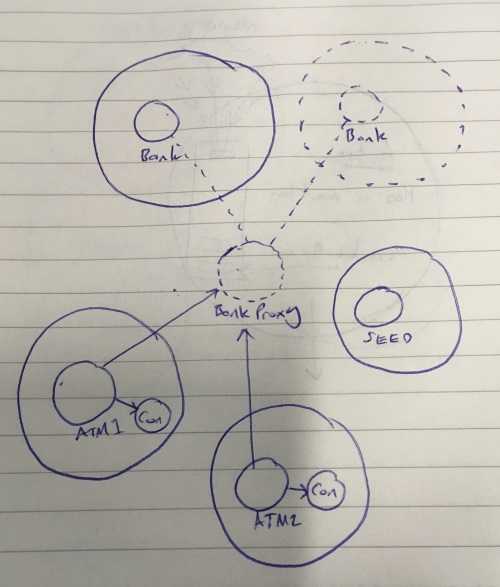 Bank
Bank
Bank Proxy
SEED
ATM1
Con
Con
ATM2